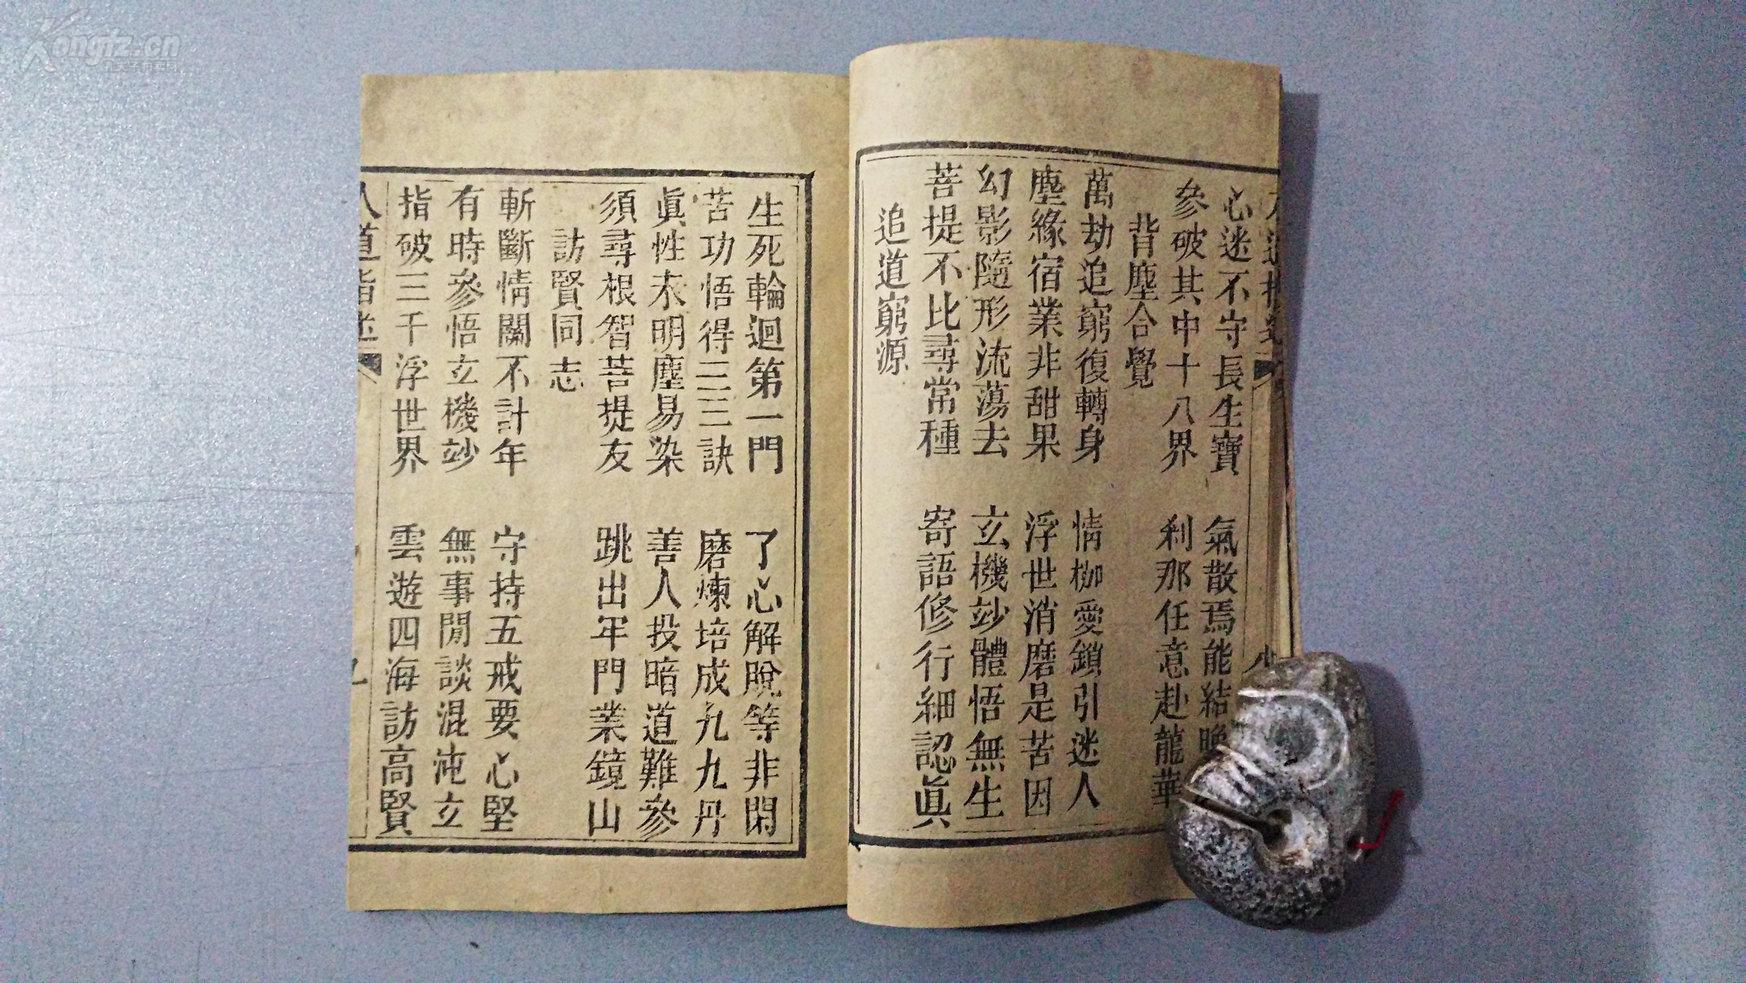 心迷不守長生寶 氣散焉能結
參破其中十八界 剎那任意赴龍華
背塵合覺
萬劫追窮復轉身 情枷愛鎖引迷人
塵緣宿業非甜果 浮世消磨是苦因
幻影隨形流蕩去 玄機妙體悟無生
菩提不比尋常種 寄語修行細認眞
追道窮源
生死輪迴第一門 了心解脫等非閑
苦功悟得三三訣 磨煉培成九九丹
眞性未明塵易染 善人投暗道難參
須尋根智菩提友 跳出牢門業鏡山
訪賢同志
斬斷情關不計年 守持五戒要心堅
有時參悟立機妙 無事閒談混沌立
指破三千浮世界 雲遊四海訪高賢
道指迷
Kongfz.cn